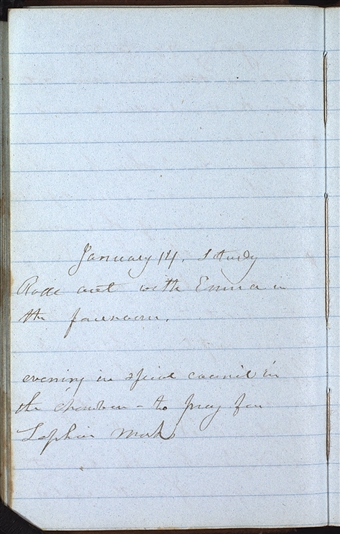 January 14. Study
Rode out with Emma in
the forenoon.
evening in special council in
the chamber - to pray for
Sophia Marks